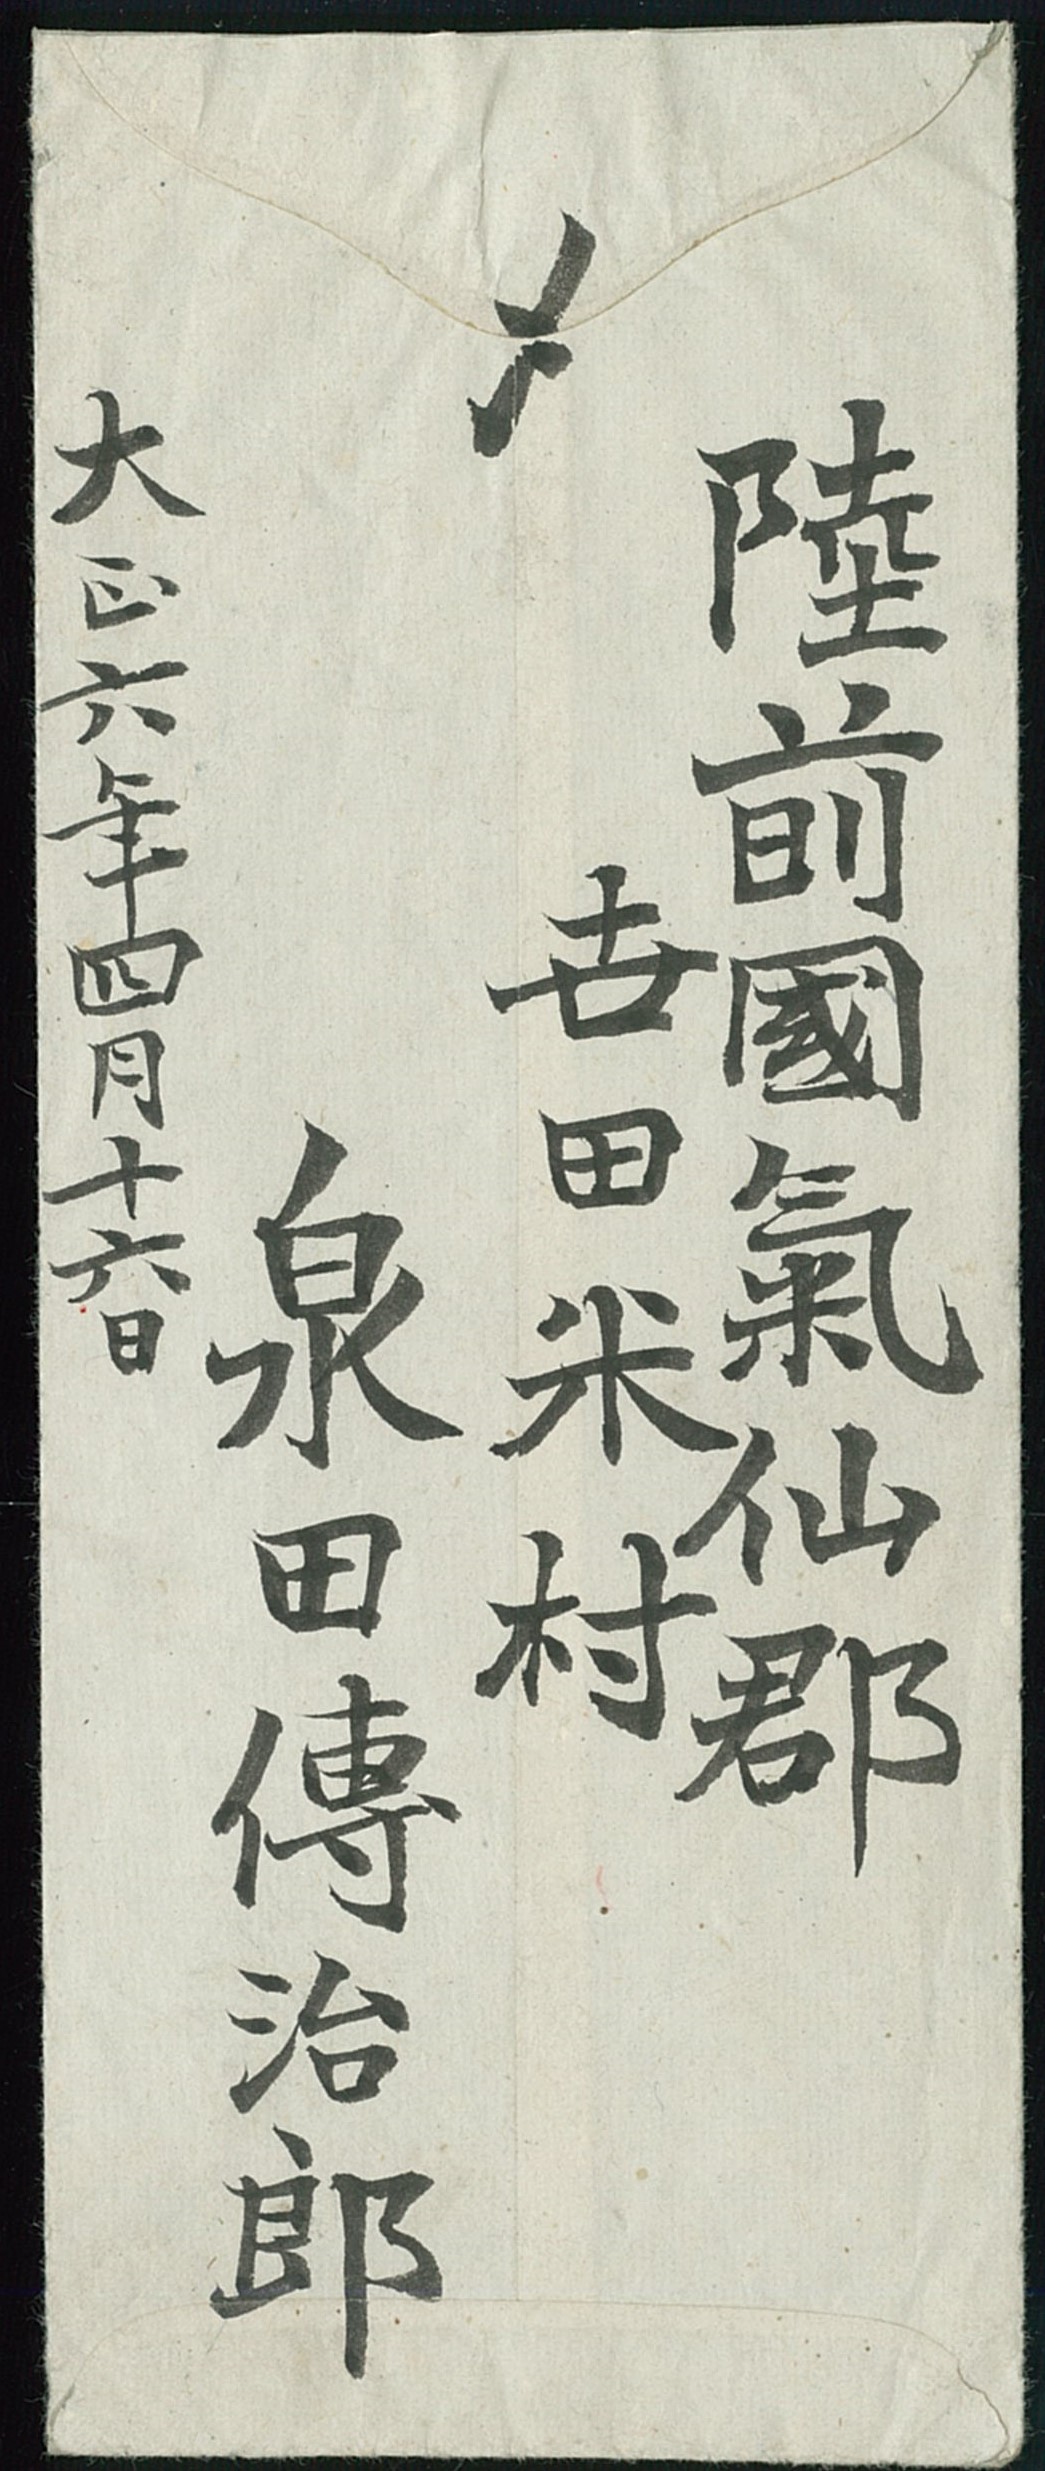 〆
陸前國氣仙郡
世田米村
泉田傳治郎
大正六年四月十六日